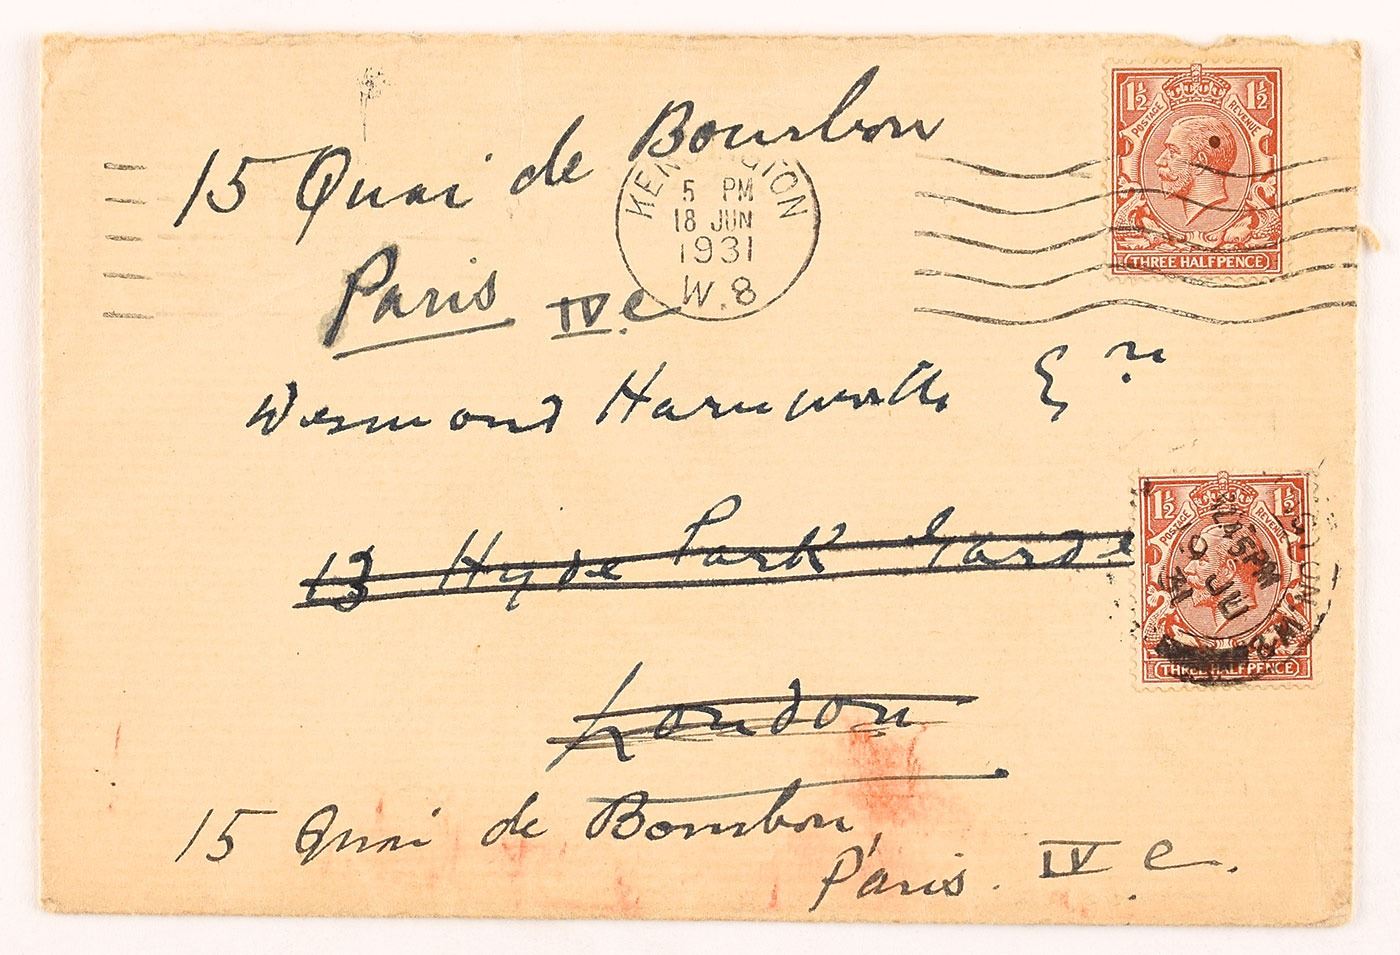 15 Quai de Bourbon
Paris IVe
KENSINGTON
5 PM
18 JUN
1931
W.8
1½ 1½
POSTAGE REVENUE
THREE HALFPENCE
Desmond Harmsworth Esqre
13 Hyde Park Garde
London
1½ 1½
POSTAGE REVENUE
45PM
JUN
31
W.8
THREE HALFPENCE
15 Quai de Bourbon,
Paris. IVe.